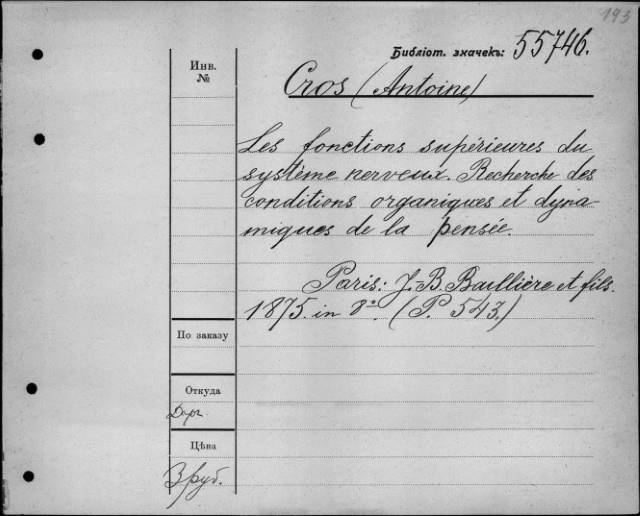 193
Библіот. значекъ: 55746.
Инв.
№
Cros (Antoine)
Les fonctions supérieures du
système nerveux. Recherche des
conditions organiques et dyna-
miques de la pensée.
Paris: J.-B. Baillière et fils.
1875. in 8º. (P. 543.)
По заказу
Откуда
Цѣна
3 руб.